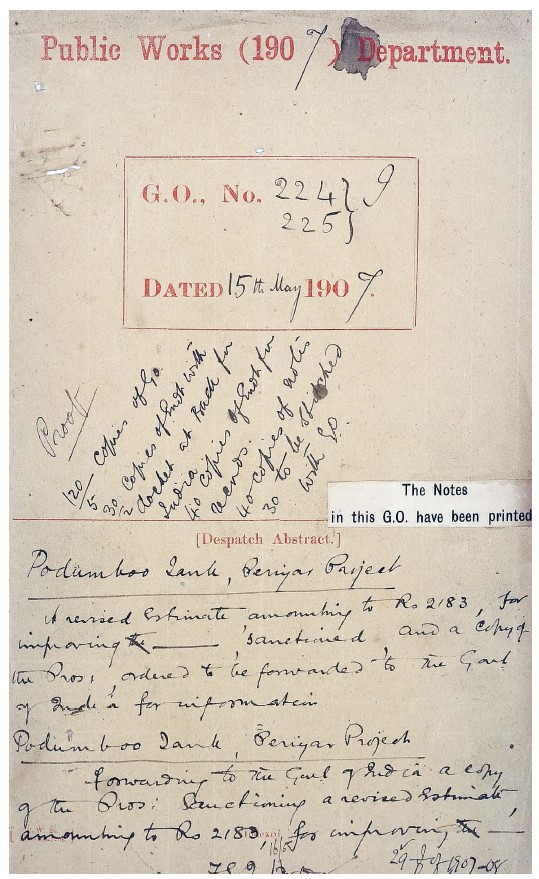 Public Works (1907) Department.
G.O., No. 224 } 9
225 }
DATED 15th May 1907.
Proof
120 copies of G.O.
5
30 Copies of Endt with
2 docket at Back for
India
40 copies of Endt for
records.
40 copies of notes
30 to be stitched
with G.O.
The Notes
in this G.O. have been printed
[Despatch Abstract.]
Podumboo Tank, Periyar Project
A revised Estimate amounting to Rs 2183, for
improving the —— sanctioned and a copy of
the Pros: ordered to be forwarded to the Govt
of India for information
Podumboo Tank, Periyar Project
forwarding to the Govt of India a copy
of the Pros: Sanctioning a revised Estimate,
amounting to Rs 2183, for improving the ——
16/5
29 of 1907-08